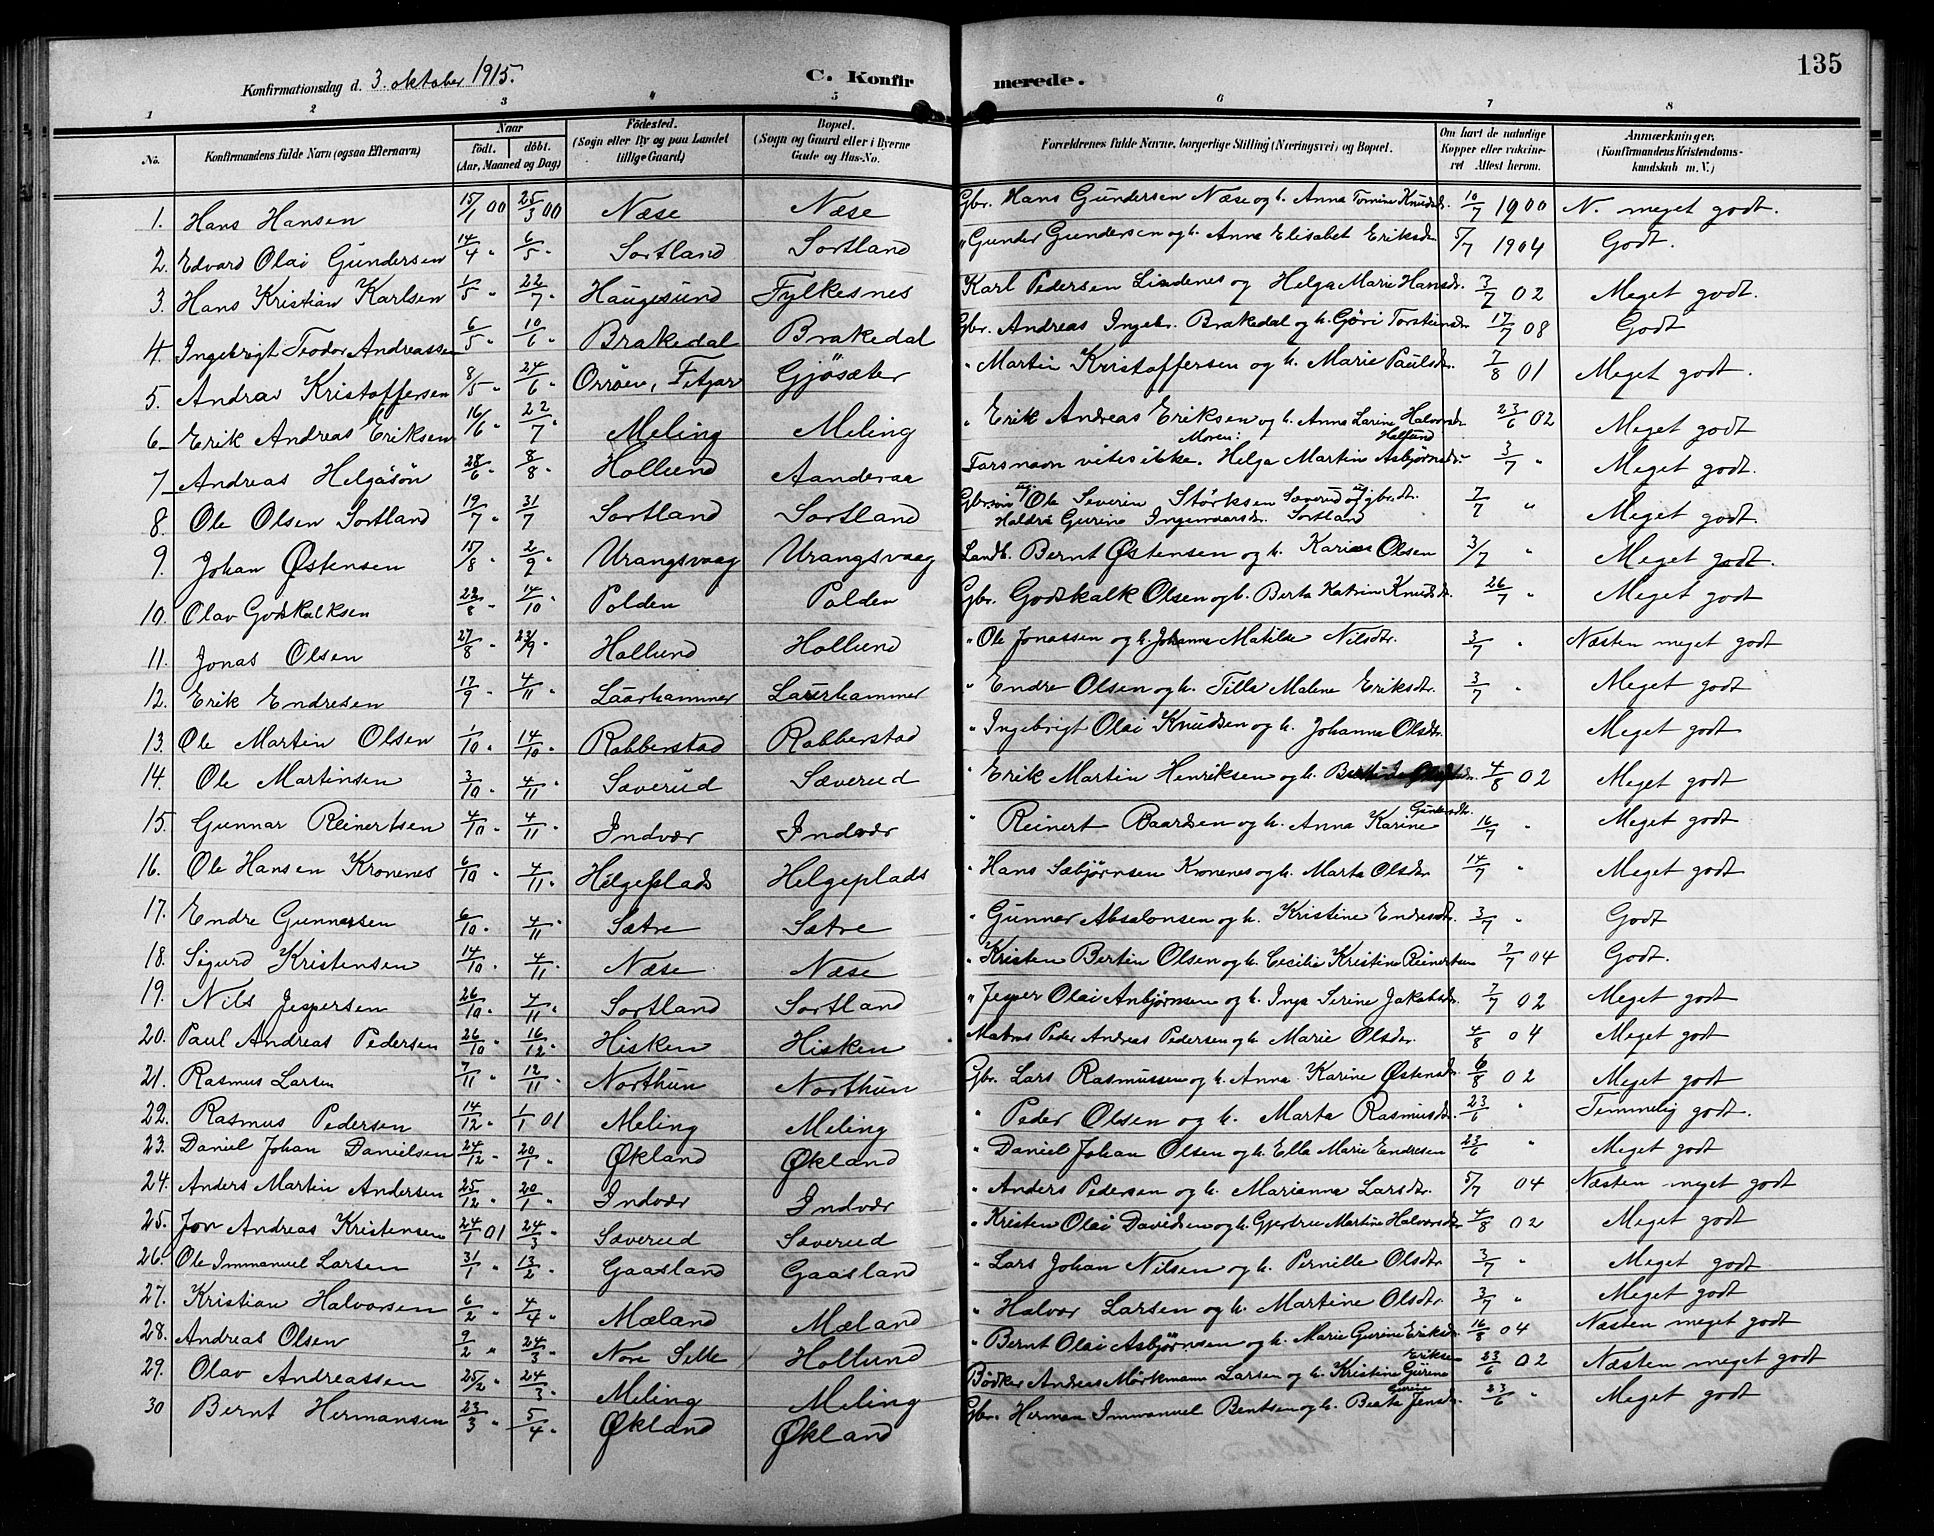 135
Konfirmationsdag d. 3. oktober 1915. C. Konfirmerede.
1 2 3 4 5 6 7 8
No. Konfirmandens fulde Navn (ogsaa Efternavn) Naar födt. döbt. (Aar, Maaned og Dag) Födested. (Sogn eller By og paa Landet tillige Gaard) Bopæl. (Sogn og Gaard eller i Byerne Gade og Hus-No. Forældrenes fulde Navne, borgerlige Stilling (Næringsvei) og Bopæl. Om havt de naturlige Kopper eller vaccineret Attest herom. Anmærkninger. (Konfirmandens Kristendomskundskab m. V.)
1. Hans Hansen 15/1 00 25/3 00 Næse Næse Gbr. Hans Gundersen Næse og h. Anna Tomine Knudsdr. 10/7 1900 N. meget godt.
2. Edvard Olai Gundersen 14/4 " 6/5 " Sortland Sortland " Gunder Gundersen og h. Anna Elisabet Eriksdr 5/7 1904 Godt.
3. Hans Kristian Karlsen 1/5 " 22/7 " Haugesund Fylkesnes Karl Pedersen Lindenes og Helga Marie Hansdr. 3/7 02 Meget godt.
4. Ingebrigt Teodor Andreassen 6/5 " 10/6 " Brakedal Brakedal Gbr. Andreas Ingebr. Brakedal og h. Göri Torsteinsdr 17/7 08 Godt
5. Andrav Kristoffersen 8/5 " 24/6 " Orröen, Fitjar Gjösæter " Martin Kristoffersen og h. Marie Paulsdr. 7/8 01 Meget godt.
6. Erik Andreas Eriksen 16/6 " 22/7 " Meling Meling " Erik Andreas Eriksen og h. Anna Larine Halvorsdr 23/6 02 Meget godt
7. Andreas Helgasön 28/6 " 8/8 " Hollund Aanderaa Farsnavn vites ikke. Moren: Helga Martine Asbjørnsdr. Hollund 3/7 " Meget godt.
8. Ole Olsen Sortland 19/7 " 31/7 " Sortland Sortland Ole Severin Störksen Sæverud og gbr.dtr. Haldis Gurine Ingemarsdr. Sortland 7/7 " Meget godt.
9. Johan Østensen 15/8 " 2/9 " Urangsvaag Urangsvaag Landh. Bernt Østensen og h. Karine Olsen 3/7 " Meget godt.
10. Olav Godskalksen 22/8 " 14/10 " Polden Polden Gbr. Godskalk Olsen og h. Berta Katrine Knudsdr. 26/7 " Meget godt
11. Jonas Olsen 27/8 " 23/9 " Hollund Hollund " Ole Jonassen og h. Johanna Matilde Nilsdr. 3/7 " Næsten meget godt
12. Erik Endresen 17/9 " 4/11 " Laurhammer Laurhammer " Endre Olsen og h. Tilla Malene Eriksdr. 3/7 " Meget godt
13. Ole Martin Olsen 1/10 " 14/10 " Robberstad Robberstad " Ingebrigt Olai Knudsen og h. Johanna Olsdr. Meget godt
14. Ole Martinsen 3/10 " 4/11 " Sæverud Sæverud " Erik Martin Henriksen og h. 4/8 02 Meget godt
15. Gunnar Reinertsen 4/10 " 4/11 " Indvær Indvær " Reinert Baardsen og h. Anna Karine Gundersdtr. 16/7 " Meget godt
16. Ole Hansen Kronenes 6/10 " 4/11 " Helgeplads Helgeplads " Hans Sæbjørnsen Kronenes og h. Marta Olsdr 14/7 " Meget godt
17. Endre Gunnarsen 6/10 " 4/11 " Sætre Sætre " Gunnar Absalonsen og h. Kristine Endresdtr. 3/7 " Godt
18. Sigurd Kristensen 14/10 " 4/11 " Næse Næse " Kristen Bertin Olsen og h. Cecilie Kristine Reinertsen 7/7 04 Godt.
19. Nils Jespersen 26/10 " 4/11 " Sortland Sortland " Jesper Olai Anbjørnsen og h. Inga Serine Jakobsdr. 7/7 02 Meget godt
20. Paul Andreas Pedersen 26/10 " 16/12 " Hisken Hisken Matros Peder Andreas Pedersen og h. Marie Olsdr. 4/8 04 Meget godt
21. Rasmus Larsen 7/11 " 12/11 " Northun Northun Gbr. Lars Rasmussen og h. Anna Karine Østensdr. 6/8 02 Meget godt
22. Rasmus Pedersen 14/12 " 1/1 01 Meling Meling " Peder Olsen og h. Marta Rasmusdr. 23/6 " Temmelig godt.
23. Daniel Johan Danielsen 24/12 " 20/1 " Økland Økland " Daniel Johan Olsen og h. Ella Marie Endresen 23/6 " Meget godt
24. Anders Martin Andersen 25/12 " 20/1 " Indvær Indvær " Anders Pedersen og h. Marianna Larsdtr. 5/7 04 Næsten meget godt
25. Jon Andreas Kristensen 24/1 01 24/3 " Sæverud Sæverud " Kristen Olai Davidsen og h. Gjertru Martine Halvorsdtr 4/8 02 Meget godt
26. Ole Immanuel Larsen 31/1 " 13/2 " Gaasland Gaasland " Lars Johan Nilsen og h. Pernille Olsdtr 3/7 " Meget godt
27. Kristian Halvorsen 6/2 " 4/4 " Mæland Mæland " Halvor Larsen og h. Martine Olsdtr. 3/7 " Meget godt
28. Andreas Olsen 9/2 " 24/3 " Nore Selle Hollund " Bernt Olai Asbjørnsen og h. Marie Gurine Eriksdr. 16/8 04 Næsten meget godt
29. Olav Andreassen 25/2 " 24/3 " Meling Meling Bødker Andreas Mörkmann Larsen og h. Kristine Gurine Eriksen 23/6 02 Næsten meget godt
30 Bernt Hermansen 23/3 " 5/4 " Økland Økland Gbr. Herman Immanuel Bentsen og h. Berta Gurine Jensdr. 23/6 " Meget godt